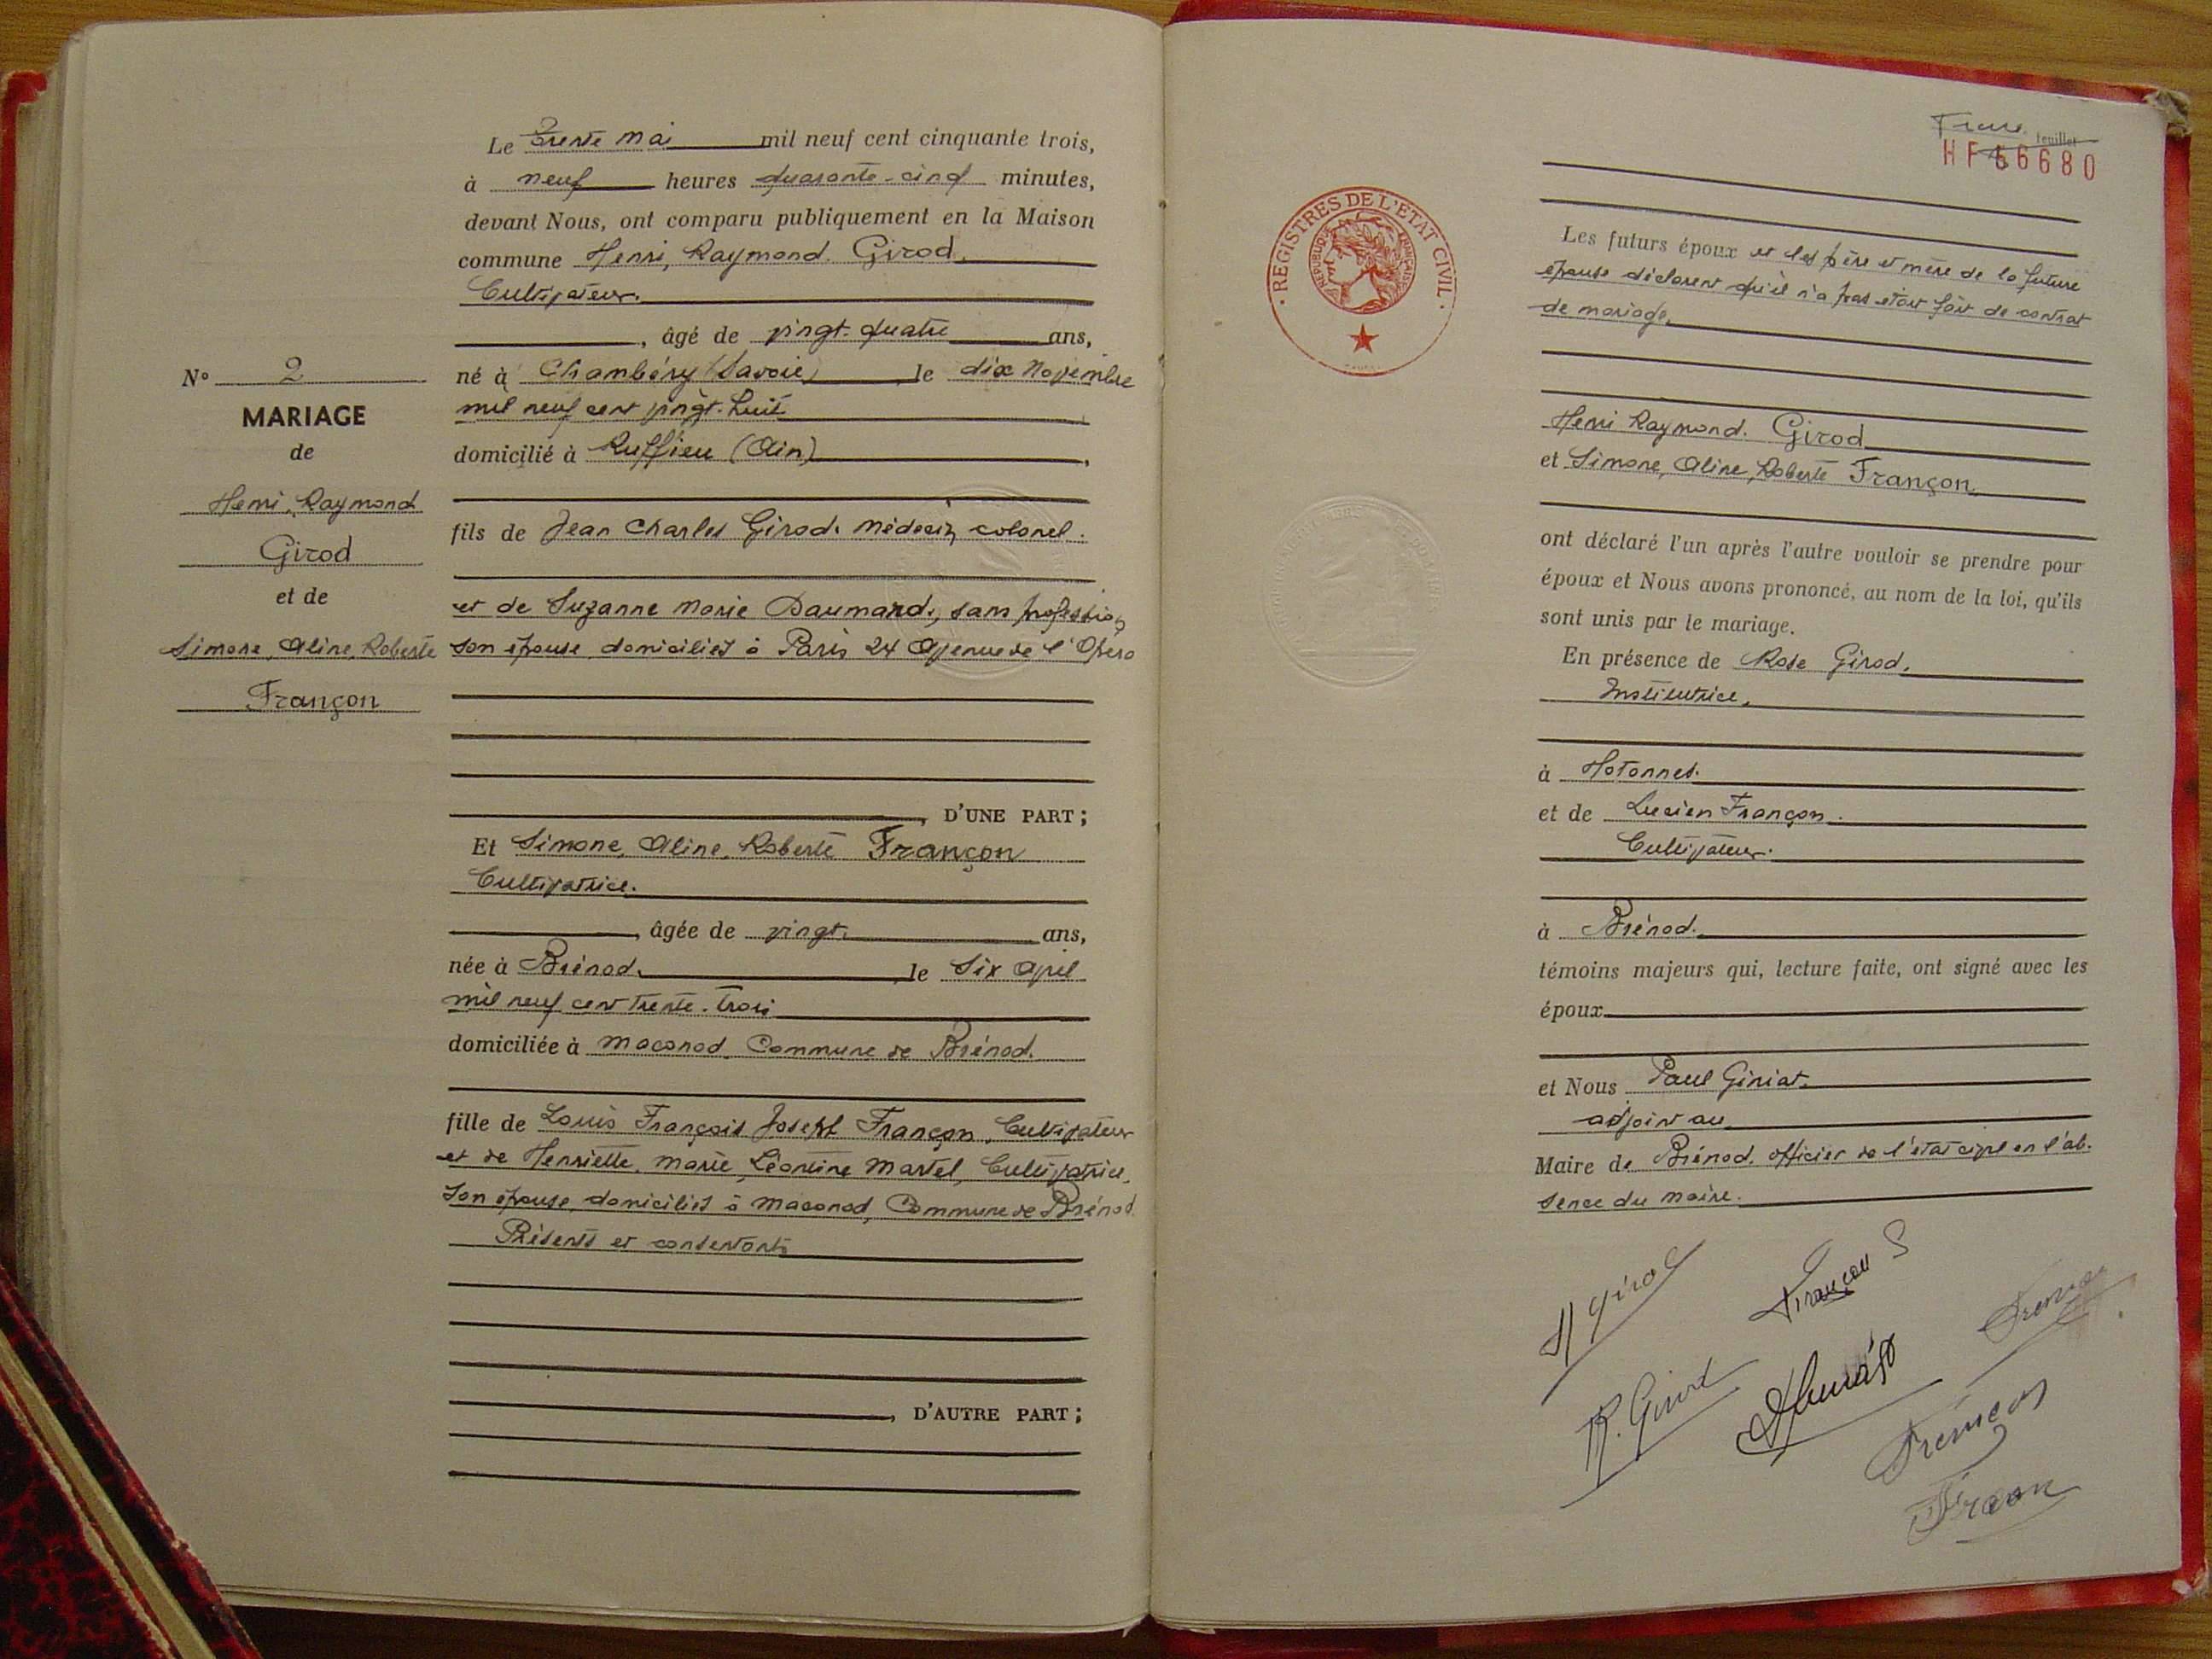 Le trente mai mil neuf cent cinquante trois,
à neuf heures quarante-cinq minutes,
devant Nous, ont comparu publiquement en la Maison
commune Henri, Raymond. Girod.
Cultivateur.
, âgé de vingt-quatre ans,
né à Chambéry (Savoie) le dix Novembre
mil neuf cent vingt-huit
domicilié à Ruffieu (Ain)
fils de Jean Charles Girod. Médecin colonel.
et de Suzanne Marie Daumard, sans profession
son épouse domiciliés à Paris 24 Avenue de l'Opéra
D'UNE PART ;
Et Simone, Aline, Roberte Françon
Cultivatrice.
, âgée de vingt. ans,
née à Brénod. le Six Avril
mil neuf cent trente-trois
domiciliée à Maconod. Commune de Brénod.
fille de Louis François Joseph Françon, Cultivateur
et de Henriette, Marie, Léontine Martel, Cultivatrice,
son épouse, domiciliés à Maconod, Commune de Brénod.
Présents et consentants
D'AUTRE PART ;
N° 2
MARIAGE
de
Henri, Raymond
Girod
et de
Simone, Aline, Roberte
Françon
feuillet
HF 66680
REGISTRES DE L'ETAT CIVIL
REPUBLIQUE FRANÇAISE
Les futurs époux et les père et mère de la future
épouse déclarent qu'il n'a pas était fait de contrat
de mariage.
Henri Raymond. Girod
et Simone, Aline, Roberte Françon
ont déclaré l'un après l'autre vouloir se prendre pour
époux et Nous avons prononcé, au nom de la loi, qu'ils
sont unis par le mariage.
En présence de Rose Girod.
Institutrice,
à Hotonnes.
et de Lucien Françon.
Cultivateur.
à Brénod.
témoins majeurs qui, lecture faite, ont signé avec les
époux
et Nous Paul Giriat.
adjoint au
Maire de Brénod. officier de l'état civil en l'ab-
sence du maire.
H Girod
Françon S
R. Girod